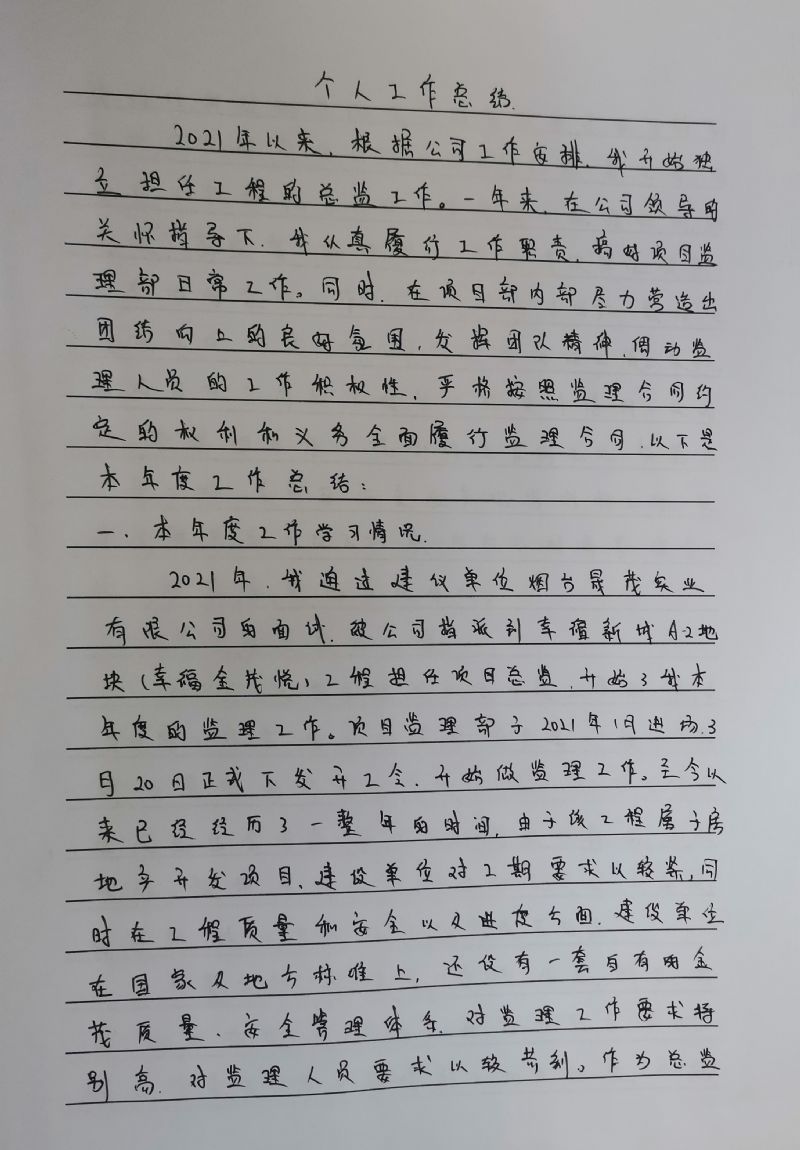 个人工作总结.
2021年以来,根据公司工作安排,我开始独
立担任工程的总监工作。一年来,在公司领导的
关怀指导下,我认真履行工作职责,搞好项目监
理部日常工作。同时,在项目部内部尽力营造出
团结向上的良好氛围,发挥团队精神,调动监
理人员的工作积极性,严格按照监理合同约
定的权利和义务全面履行监理合同,以下是
本年度工作总结:
一、本年度工作学习情况.
2021年,我通过建设单位烟台晟茂实业
有限公司的面试,被公司指派到幸福新城A-2地
块(幸福金茂悦)工程担任项目总监,开始了我本
年度的监理工作。项目监理部于2021年1月进场,3
月20日正式下发开工令,开始做监理工作。至今以
来已经经历了一整年的时间,由于该工程属于房
地产开发项目,建设单位对工期要求比较紧,同
时在工程质量和安全以及进度方面,建设单位
在国家及地方标准上,还设有一套自有的金
茂质量、安全管理体系,对监理工作要求特
别高,对监理人员要求比较苛刻。作为总监